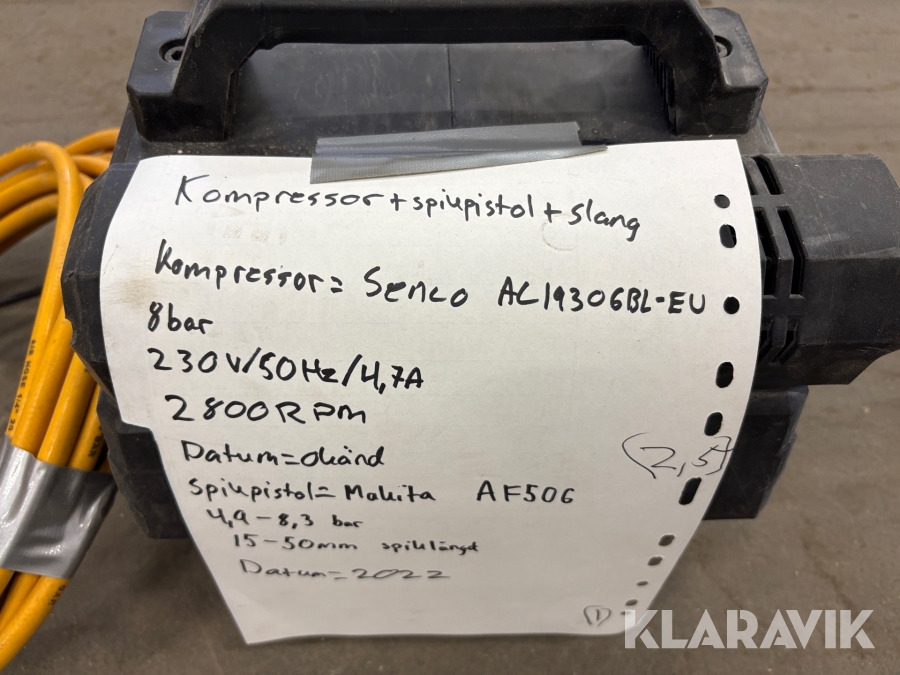 Kompressor + spikpistol + slang
Kompressor = Senco AC19306BL-EU
8bar
230V/50Hz/4,7A
2800RPM
Datum=okänd
(2,5)
Spikpistol= Makita AF506
4,9-8,3 bar
15-50mm spiklängd
Datum=2022
1
KLARAVIK